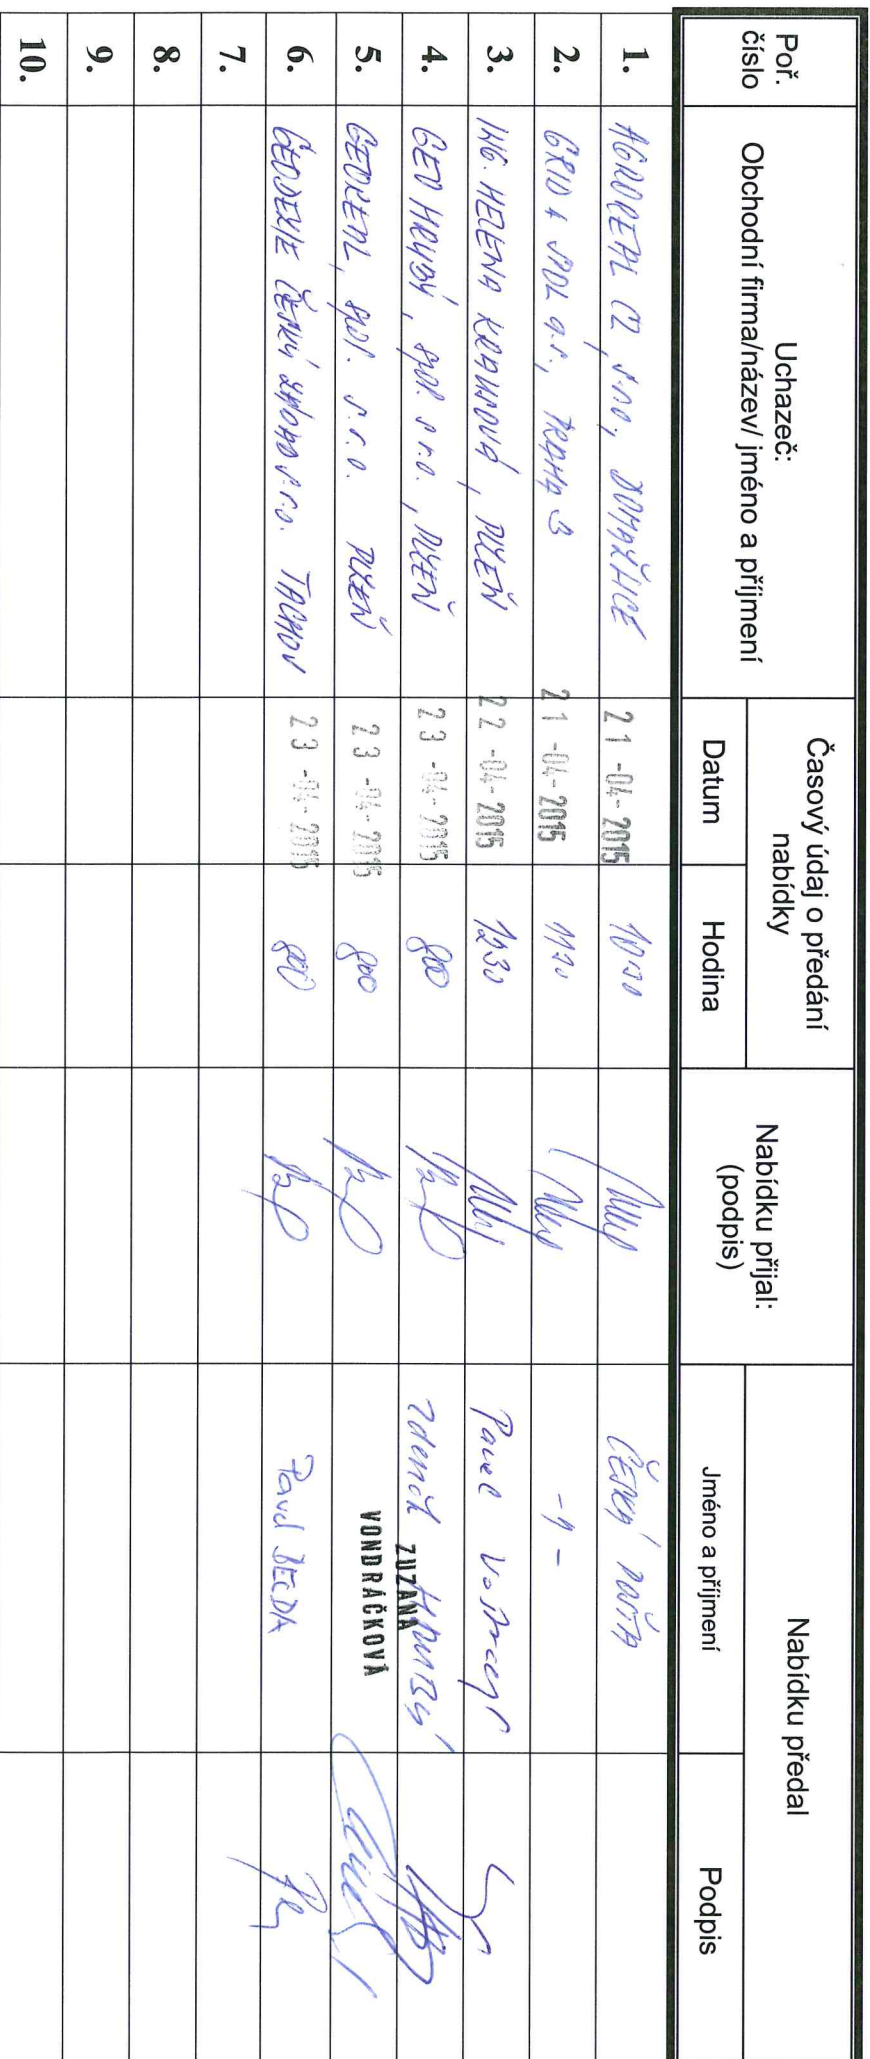 Poř.
číslo
Uchazeč:
Obchodní firma/název/ jméno a příjmení
Časový údaj o předání
nabídky
Datum
Hodina
Nabídku přijal:
(podpis)
Nabídku předal
Jméno a příjmení
Podpis
1. AGROREAL CZ, s.r.o., DOMAŽLICE 21 -04- 2015 ČESKÁ POŠTA
2. GRID A SPOL a.s., PRAHA 3 21 -04- 2015 -"-
3. ING. HELENA KRAUSOVÁ, PLZEŇ 22 -04- 2015 1230 Pavel
4. GEO HRUBÝ, spol. s r.o., PLZEŇ 23 -04- 2015 800 Zdeněk HRUBÝ
5. GEOREAL, spol. s.r.o. PLZEŇ 23 -04- 2015 800 ZUZANA
VONDRÁČKOVÁ
6. GEODEZIE ČESKÝ ZÁPAD s.r.o. TACHOV 23 -04- 2015 800 Pavel
7.
8.
9.
10.